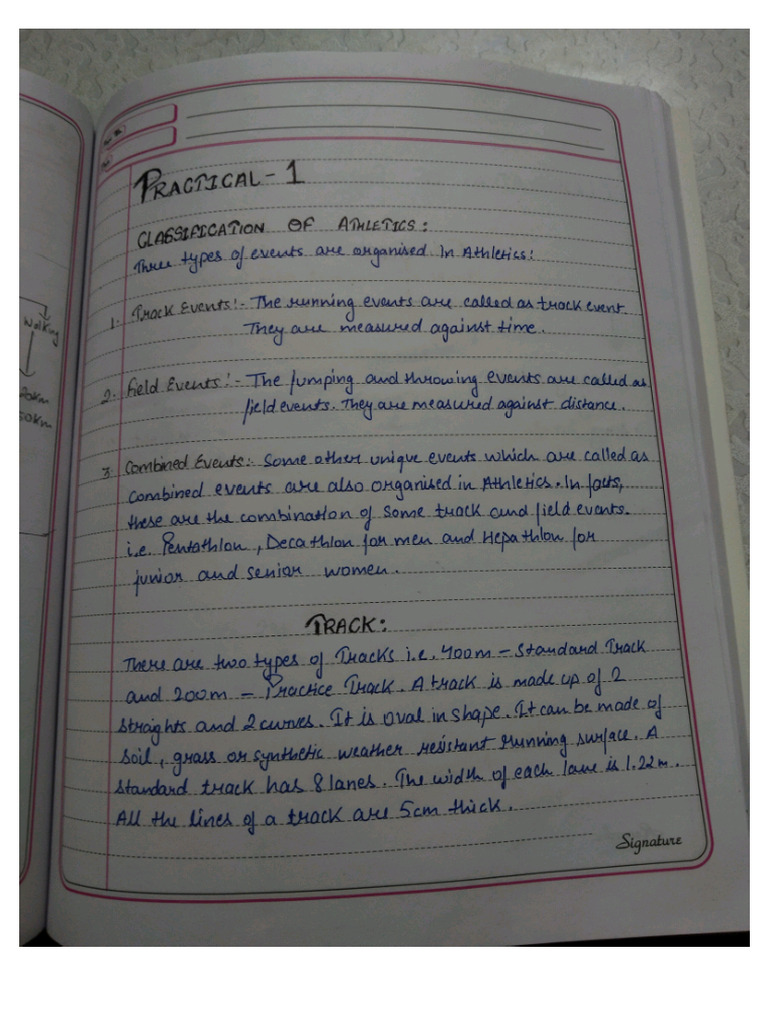 PRACTICAL - 1
CLASSIFICATION OF ATHLETICS:
Three types of events are organised in Athletics:
1. Track Events:- The running events are called as track event.
They are measured against time.
2. Field Events:- The jumping and throwing events are called as
field events. They are measured against distance.
3. Combined Events:- Some other unique events which are called as
combined events are also organised in Athletics. In facts,
these are the combination of some track and field events.
i.e. Pentathlon, Decathlon for men and Hepathlon for
junior and senior women.
TRACK:
There are two types of Tracks i.e. 400m - Standard Track
and 200m - Practice Track. A track is made up of 2
straights and 2 curves. It is oval in shape. It can be made of
soil, grass or synthetic weather resistant running surface. A
standard track has 8 lanes. The width of each lane is 1.22m.
All the lines of a track are 5cm thick.
Signature
Walking